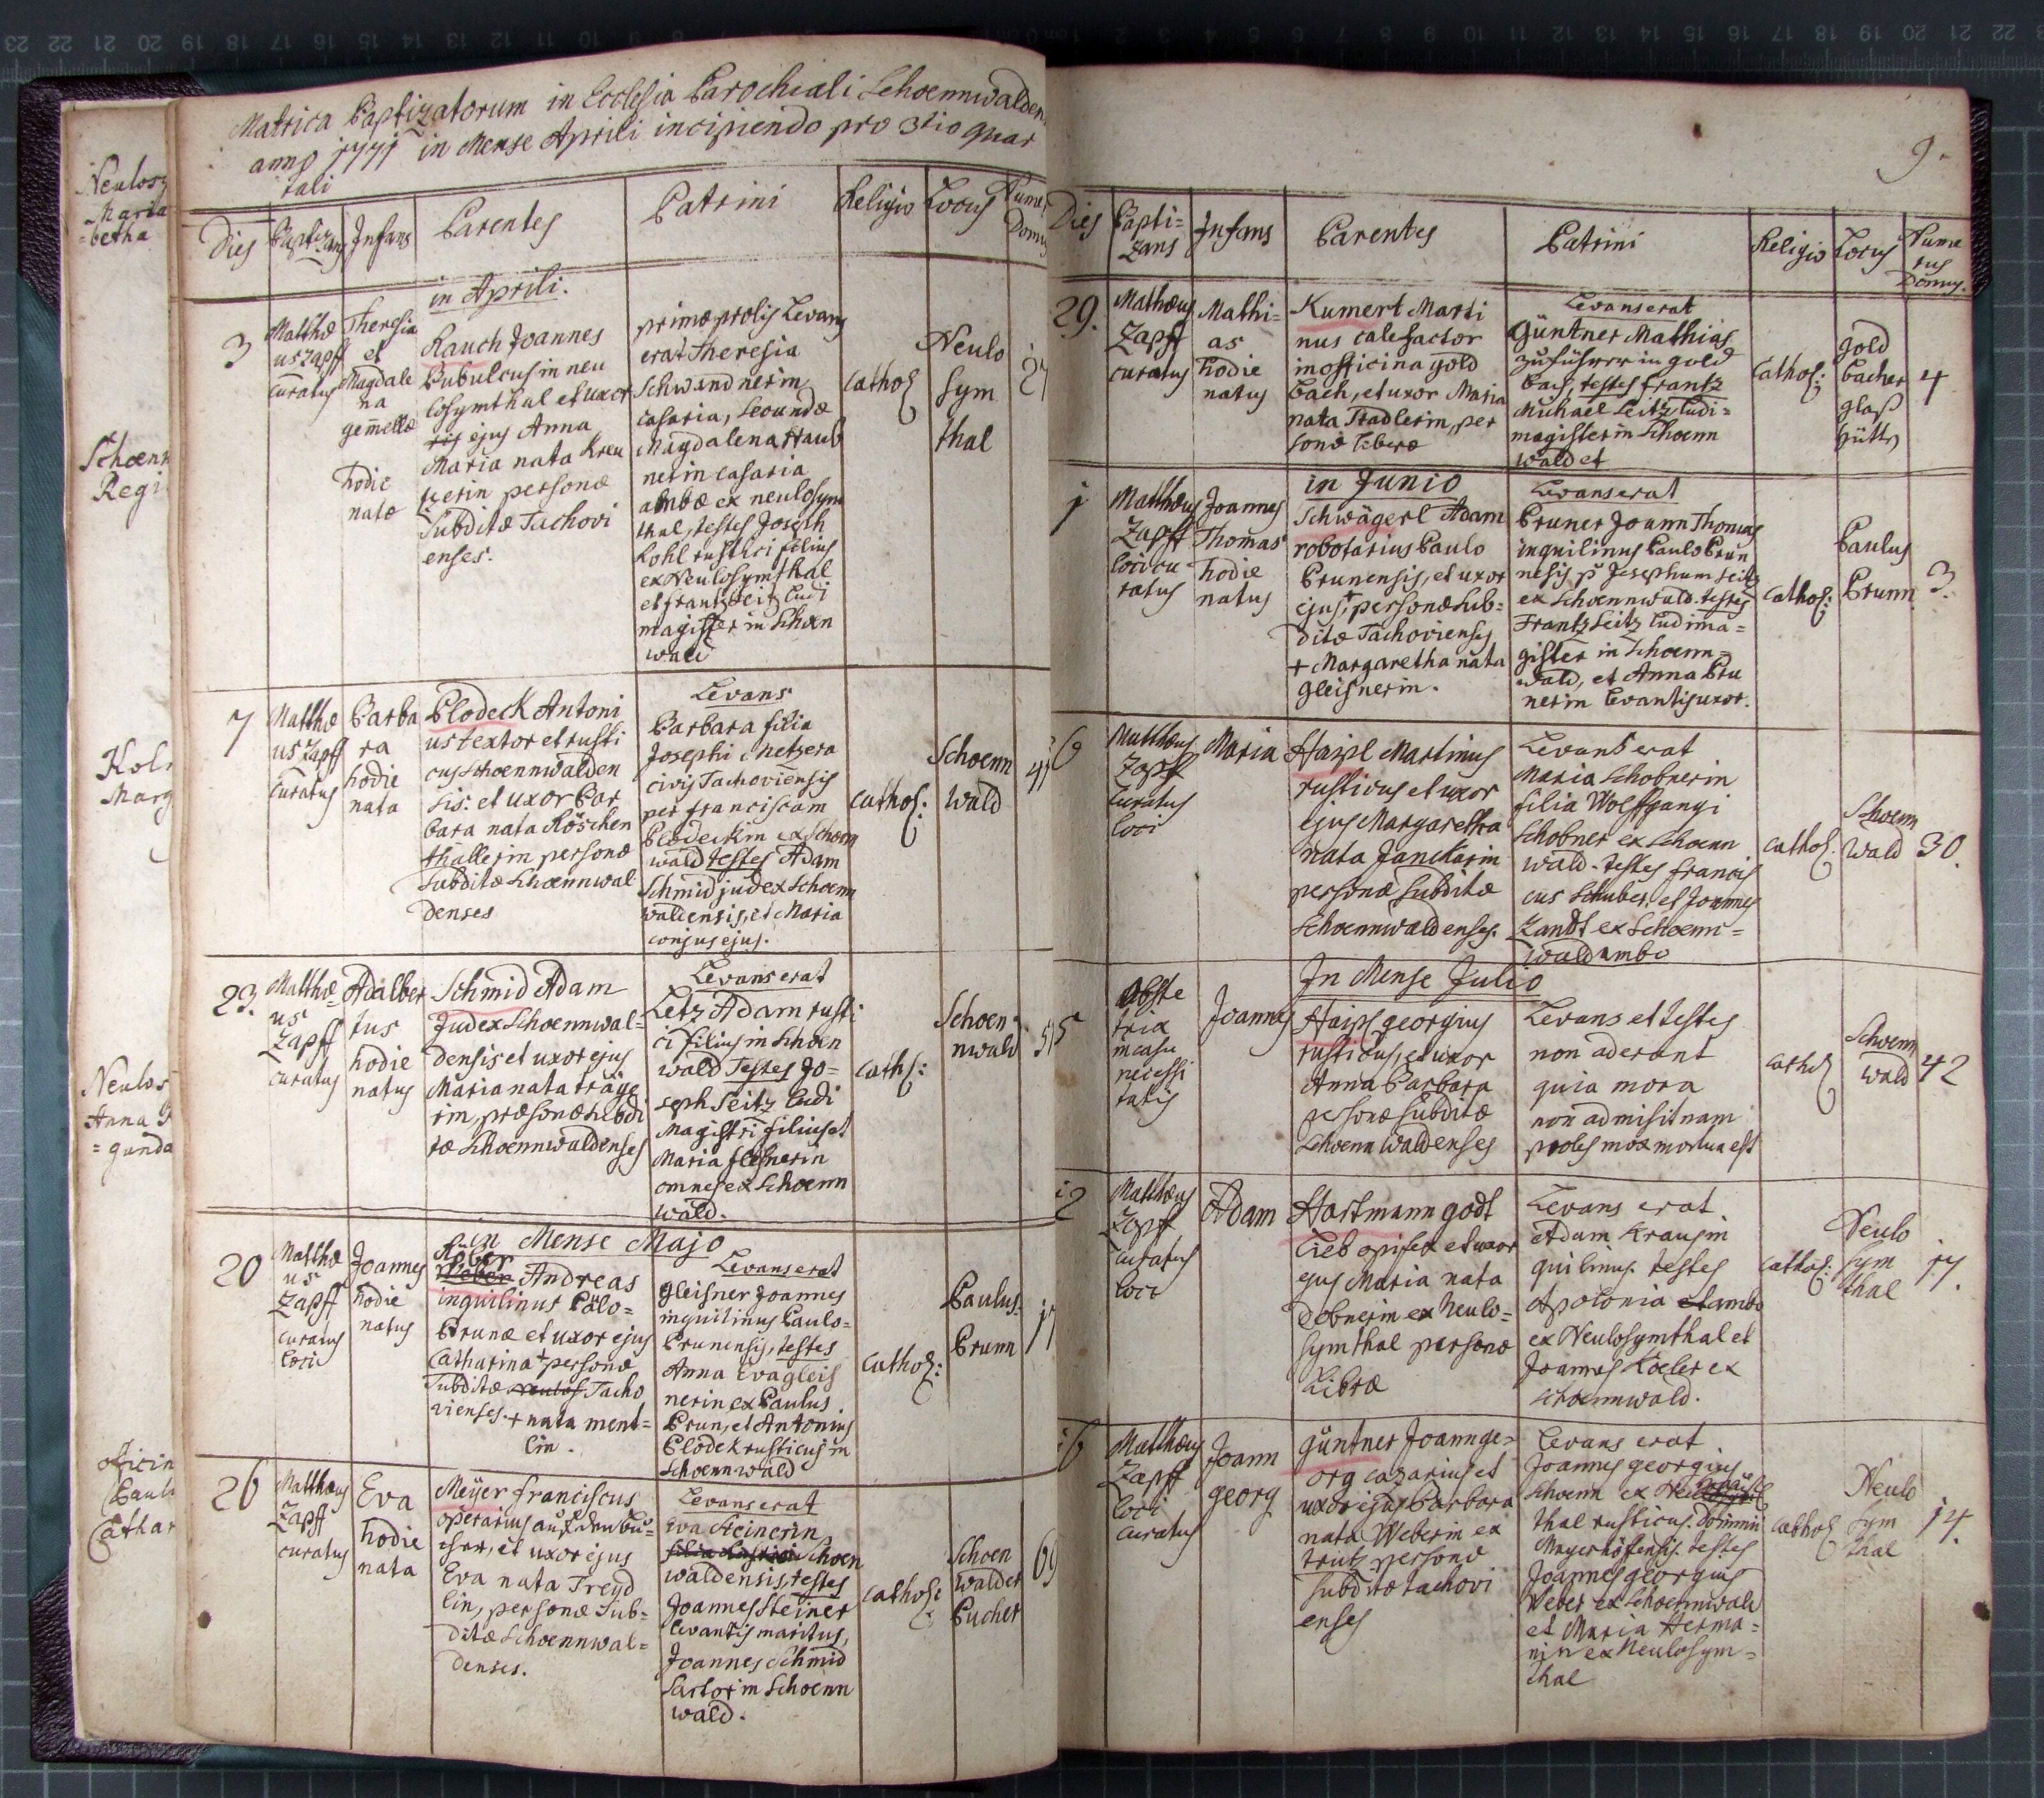 Neulos
Maria
=betha
Schoenn
Regi
Kol
Marg
Neulos
Anna
=gunda
oficin
Paul
Cathar
Matrica Baptizatorum in Ecclesia Parochiali Schoennwalden
anno 1771 in Mense Aprili incipiendo pro 3tio quar
tali
Dies
Baptizans
Infans
Parentes
Patrini
Religio
Locus
Nume
Domus
in Aprili.
3
Matthæ
us Zapff
curatus
Theresia
et
Magdale
na
gemellæ
hodie
natæ
Rauch Joannes
Bubulcus in neu
losymthal et uxor
ejus Anna
Maria nata Kreu
tzerin personæ
Subditæ Tachovi
enses.
primæ prolis Levans
erat Theresia
Schwandnerin
casaria, Secundæ
Magdalena
nerin casaria
ambæ ex neulosym
thal, testes Joseph
Kohl rustici filius
ex Neulosymthal
et frantz Seitz Ludi
magister in Schœn
wald
Cathol
Neulo
sym
thal
27
7
Matthæ
us Zapff
Curatus
Barba
ra
hodie
nata
Plodeck Antoni
us textor et rusti
cus Schoennwalden
sis: et uxor Bar
bara nata Röschen
thallerin personæ
Subditæ Schoennwal
denses
Levans
Barbara filia
Josephi Metzera
civis Tachoviensis
per franciscam
Plodeckin ex Schoen
wald testes Adam
Schmid judex Schoenn
waldensis, et Maria
conjus ejus.
Cathol:
Schoenn
wald
23.
Matthæ
us
Zapff
Curatus
Adalber
tus
hodie
natus
Schmid Adam
Judex Schoennwal=
densis et uxor ejus
Maria nata träge
rin, præsonæ Subdi
tæ Schoennwaldenses
Levans erat
Letz Adam rusti
ci filius in Schoen
wald Testes Jo=
seph Seitz Ludi
Magistri filius et
Maria
omnes ex Schoenn
wald.
Cathl:
Schoen=
nwald
in Mense Majo
20
Matthæ
us
Zapff
curatus
loci
Joannes
hodie
natus
Röber
Andreas
inquilinus Pälo=
Brunæ et uxor ejus
Catharina + personæ
Subditæ Tacho
vienses. + nata ment=
lin.
Levans erat
Gleisner Joannes
inquilinus Paulo=
Brunensis, testes
Anna Eva gleis
nerin ex Paulus
Brun, et Antonius
Plodek rusticus in
Schoennwald
Cathol:
Paulus
Brunn
17
26
Matthæus
Zapff
curatus
Eva
hodie
nata
Meÿer franciscus
operarius auf den Bu=
cher, et uxor ejus
Eva nata Treyd
lin, personæ Sub=
ditæ Schoennwal=
denses.
Levans erat
Eva Steinerin
Schoen
waldensis, testes
Joannes Steiner
levantis maritus,
Joannes Schmid
Sartor in Schoenn
wald.
Cathol:
Schoen
walder
Bucher
69
9.
Dies
Bapti=
zans
Infans
Parentes
Patrini
Religio
Locus
Nume
rus
Domus.
29.
Mathæus
Zapff
curatus
Mathi=
as
hodie
natus
Kumert Marti
nus calefactor
in officina gold
bach, et uxor Maria
nata Tradlerin, per
sonæ liberæ
Levans erat
Güntner Mathias
in gold
bach, testes frantz
Michael Seitz Ludi=
magister in Schoenn
wald et
Cathol:
gold
bacher
glaß
hütte
4
in Junio
1
Matthæus
Zapff
loci cu
ratus
Joannes
Thomas
hodie
natus
Schwägerl Adam
robotarius Paulo
Brunensis, et uxor
ejus + personæ Sub=
ditæ Tachovienses
+ Margaretha nata
Gleisnerin.
Levans erat
Bruner Joann Thomas
inquilinus Paulo Brun
nesis p Josephum Seitz
ex Schoennwald. testes
Frantz Seitz Ludima=
gister in Schoenn=
wald, et Anna Bru
nerin Levantis uxor.
Cathol:
Paulus
Brunn
3.
6
Matthæus
Zapff
Curatus
loci
Maria
Haipl Martinus
rusticus et uxor
ejus Margaretha
nata Janckarin
personæ Subditæ
Schoennwaldenses.
Levans erat
Maria Schobnerin
filia Wolffgangi
Schobner ex Schoenn
wald. testes francis
cus Schuber, et Joannes
Zandt ex Schoenn=
wald ambo
Cathol.
Schoenn
wald
30.
In Mense Julio
5
Obste
trix
in casu
necessi
tatis
Joannes
Haipl georgius
rusticus, et uxor
Anna Barbara
personæ Subditæ
Schoennwaldenses
Levans et testes
non aderant
quia mora
non admisit nam
proles mox mortua est
Cathol
Schoenn
wald
42
12
Matthæus
Zapff
curatus
loci
Adam
Hartmann godt
lieb opifex et uxor
ejus Maria nata
Dobnerin ex Neulo=
symthal personæ
Libræ
Levans erat
Adam Kraus in
quilinus. testes
Apolonia et ambo
ex Neulosymthal et
Joannes Köeler ex
Schoennwald.
Cathol:
Neulo
sym
thal
17.
16
Matthæus
Zapff
loci
curatus
Joann
georg
Güntner Joann ge=
org cazarius et
uxor ejus Barbara
nata Weberin ex
trutz personæ
Subditæ tachovi
enses
Levans erat
Joannes georgius
Schoenn ex
thal rusticus. Dominii
Mayerhöfensis. testes
Joannes georgius
Weber ex Schoennwald
et Maria Herma=
nin ex Neulosym=
thal
Cathol
Neulo
sym
thal
14.